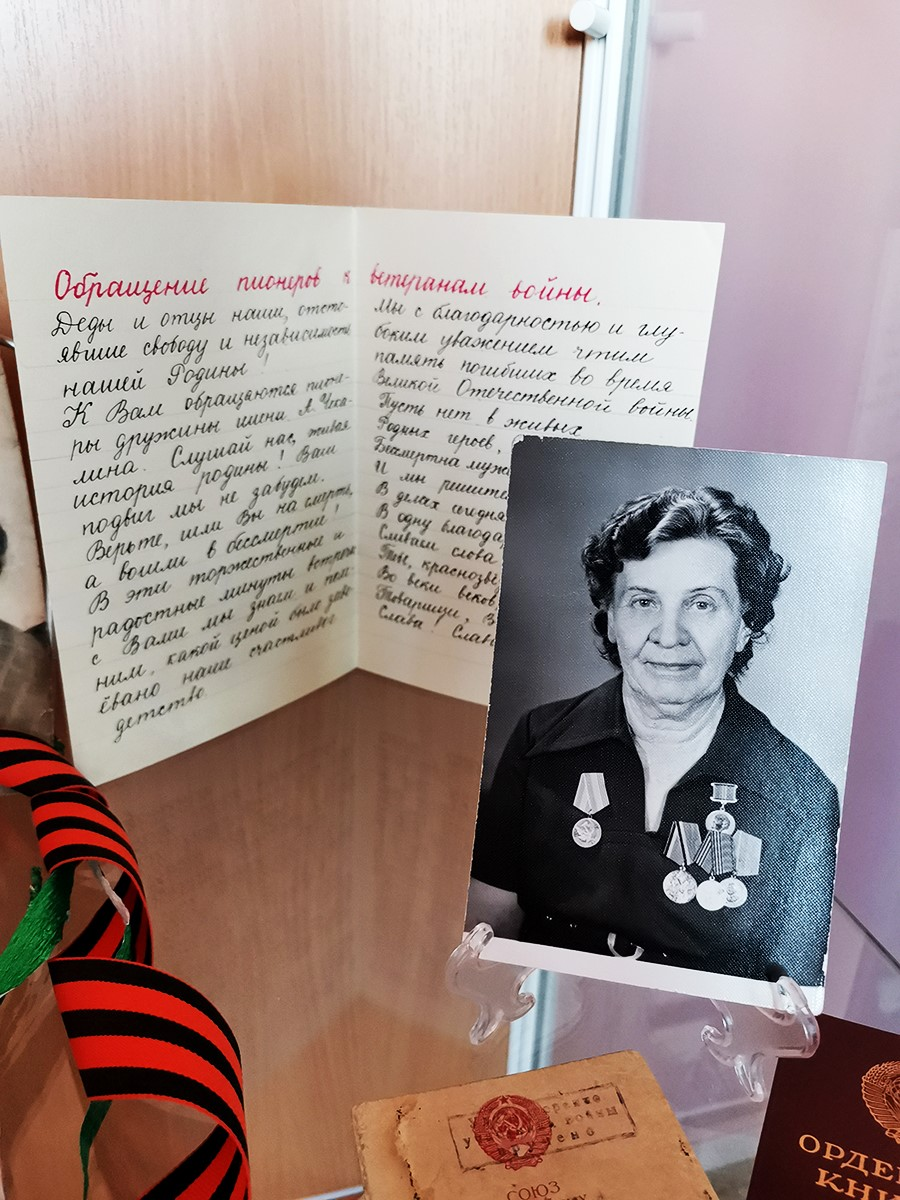 Обращение пионеров к ветеранам войны.
Деды и отцы наши, отсто-
явшие свободу и независимость
нашей Родины!
К Вам обращаются пионе-
ры дружины имени А. Чека-
лина. Слушай нас, живая
история родины! Ваш
подвиг мы не забудем.
Верьте, шли Вы на смерть,
а вошли в бессмертие!
В эти торжественные и
радостные минуты встречи
с Вами мы знаем и пом-
ним, какой ценой было заво-
ёвано наше счастливое
детство.
Мы с благодарностью и глу-
боким уважением чтим
память погибших во время
Великой Отечественной войны.
Пусть нет в живых
Родных героев,
Бессмертна муже
И мы решите
В делах сегодня
В одну благода
Сливаем слова
Ты, краснозве
Во веки веков,
Товарищи, В
Слава! Слав
У
ено
СОЮЗ
ОРДЕ
КН